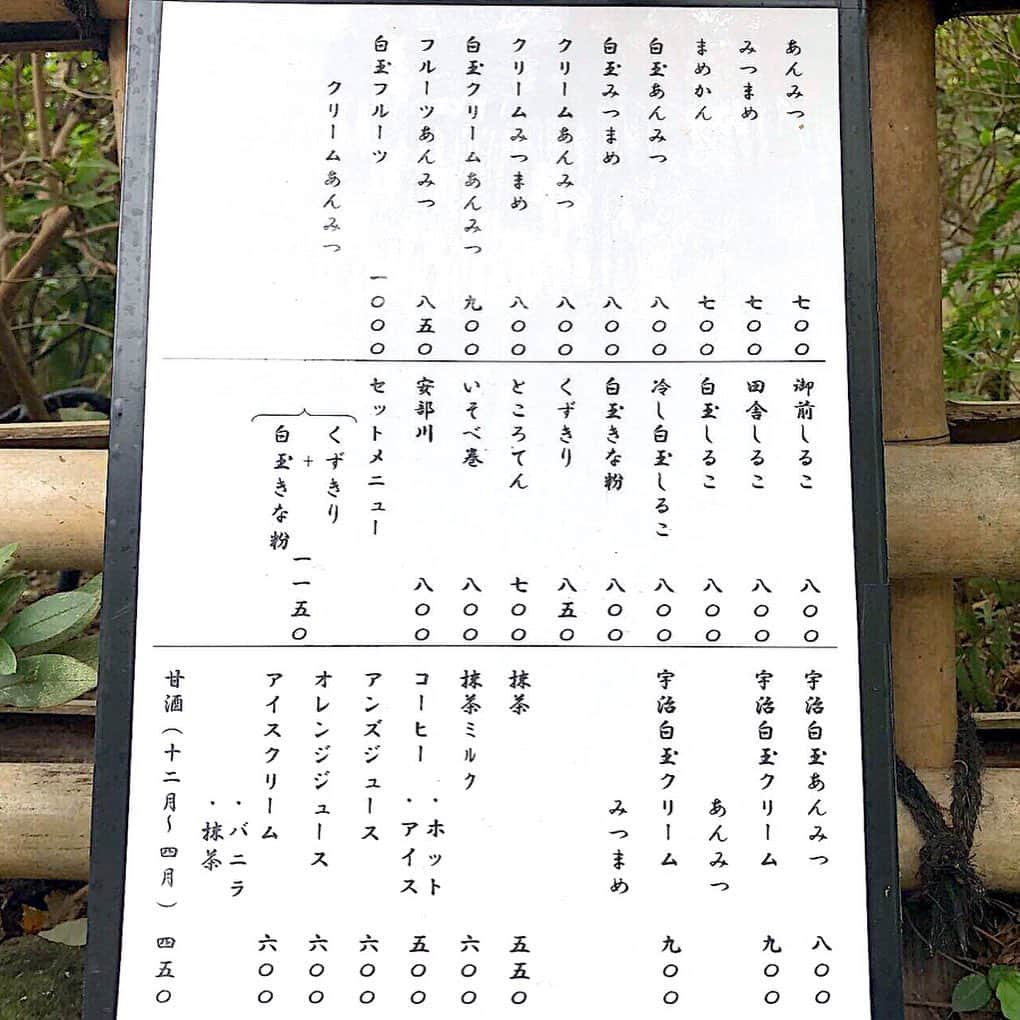 あんみつ 七〇〇
みつまめ 七〇〇
まめかん 七〇〇
白玉あんみつ 八〇〇
白玉みつまめ 八〇〇
クリームあんみつ 八〇〇
クリームみつまめ 八〇〇
白玉クリームあんみつ 九〇〇
フルーツあんみつ 八五〇
白玉フルーツ
クリームあんみつ 一〇〇〇
御前しるこ 八〇〇
田舎しるこ 八〇〇
白玉しるこ 八〇〇
冷し白玉しるこ 八〇〇
白玉きな粉 八〇〇
くずきり 八五〇
ところてん 七〇〇
いそべ巻 八〇〇
安部川 八〇〇
セットメニュー
くずきり
+
白玉きな粉 一一五〇
宇治白玉あんみつ 八〇〇
宇治白玉クリーム
あんみつ 九〇〇
宇治白玉クリーム
みつまめ 九〇〇
抹茶 五五〇
抹茶ミルク 六〇〇
コーヒー ・ホット
・アイス 五〇〇
アンズジュース 六〇〇
オレンジジュース 六〇〇
アイスクリーム 六〇〇
・バニラ
・抹茶
甘酒（十二月～四月） 四五〇